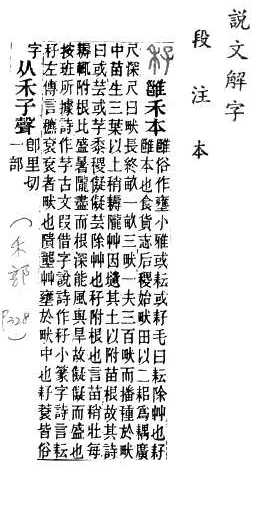 說文解字
段注本
雝禾本
雝俗作壅小雅或耘或耔毛曰耘除艸也耔
雝本也食貨志后稷始甽田以二耜爲耦廣
尺深尺曰甽長終畝一畝三甽一夫三百甽而播穜於甽
中苗生三葉以上稍耨隴艸因隤其土以附苗根故其詩
曰或芸或芓黍稷儗儗芸除艸也秄附根也言苗稍壯每
耨輒附根比盛暑隴盡而根深能風與旱故儗儗而盛也
按班所據詩作芓古文叚借字說詩作秄小篆字詩言耘
秄左傳言穮蓘蓘者甽也隤壟艸壅於甽中也秄蓘皆俗
字
从禾子聲
卽里切
一部
(禾部
P328)